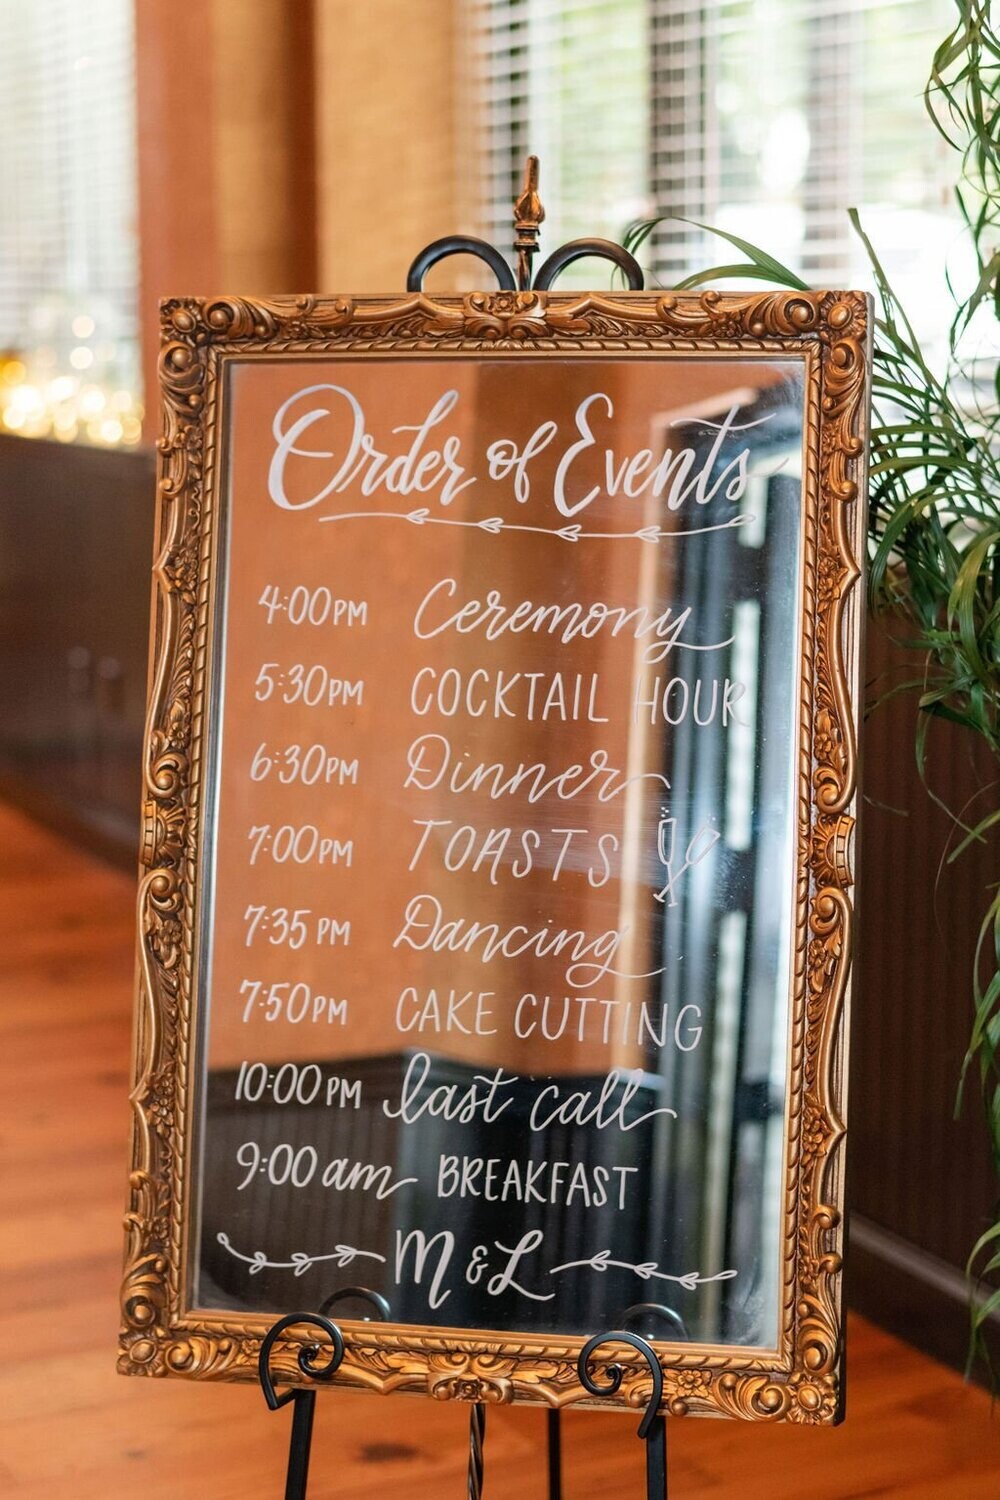 Order of Events
4:00PM Ceremony
5:30PM COCKTAIL HOUR
6:30PM Dinner
7:00PM TOASTS
7:35 PM Dancing
7:50PM CAKE CUTTING
10:00 PM last call
9:00 am BREAKFAST
M & L